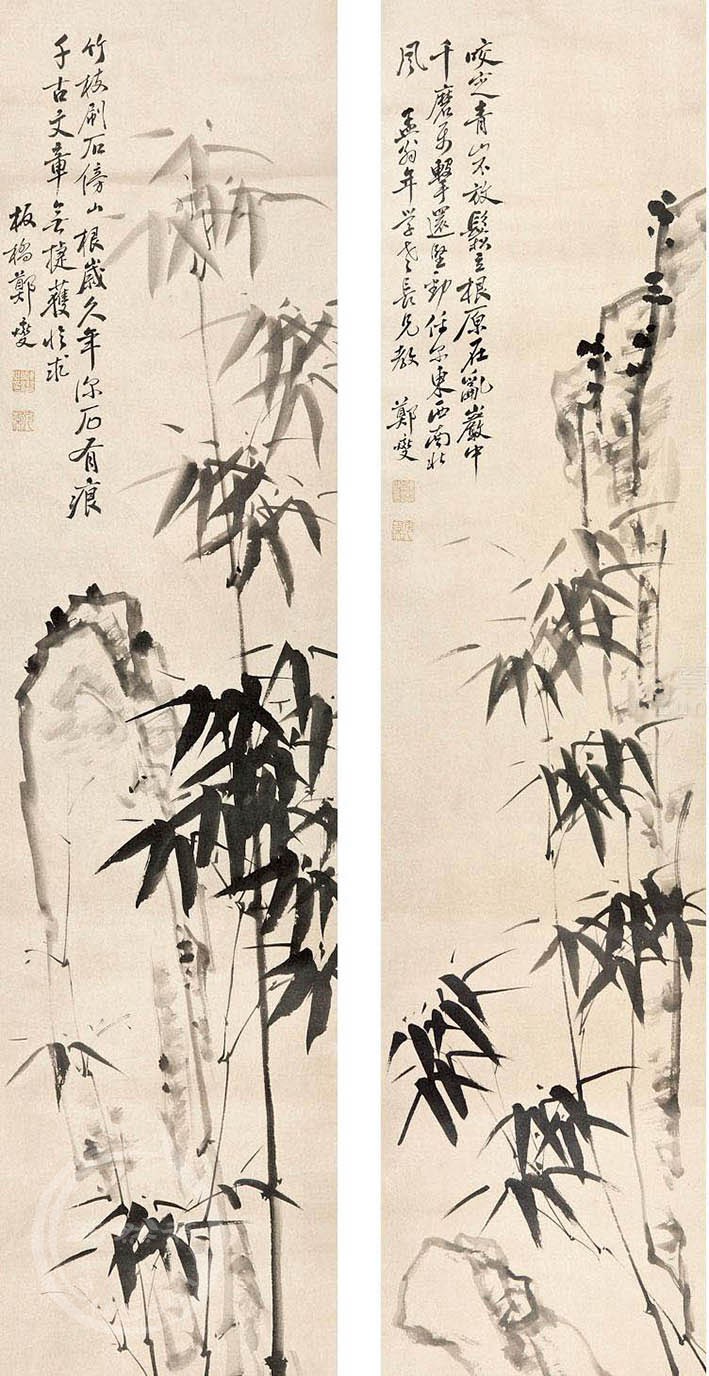 咬定青山不放鬆立根原在亂巖中
千磨万擊還堅勁任尔東西南北
風 孟翁年学老長兄教 鄭燮
竹枝刷石傍山根歲久年深石有痕
千古文章無捷獲求
板橋鄭燮